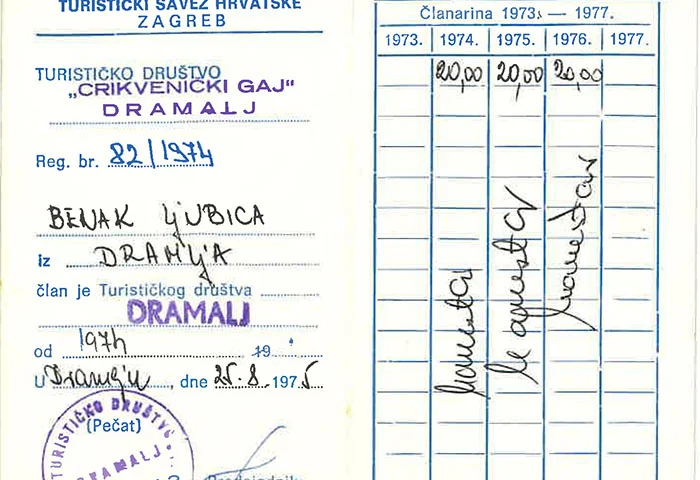 TURISTIČKI SAVEZ HRVATSKE
ZAGREB
TURISTIČKO DRUŠTVO
„CRIKVENIČKI GAJ"
DRAMALJ
Reg. br. 82/1974
BENAK LJUBICA
iz DRAMLJA
član je Turističkog društva
DRAMALJ
od 1974 19
U Dramlju, dne 25.8.1975
TURISTIČKO DRUŠTVO
(Pečat)
DRAMALJ
Predsjednik
Članarina 1973. — 1977.
1973. 1974. 1975. 1976. 1977.
20,00 20,00 20,00